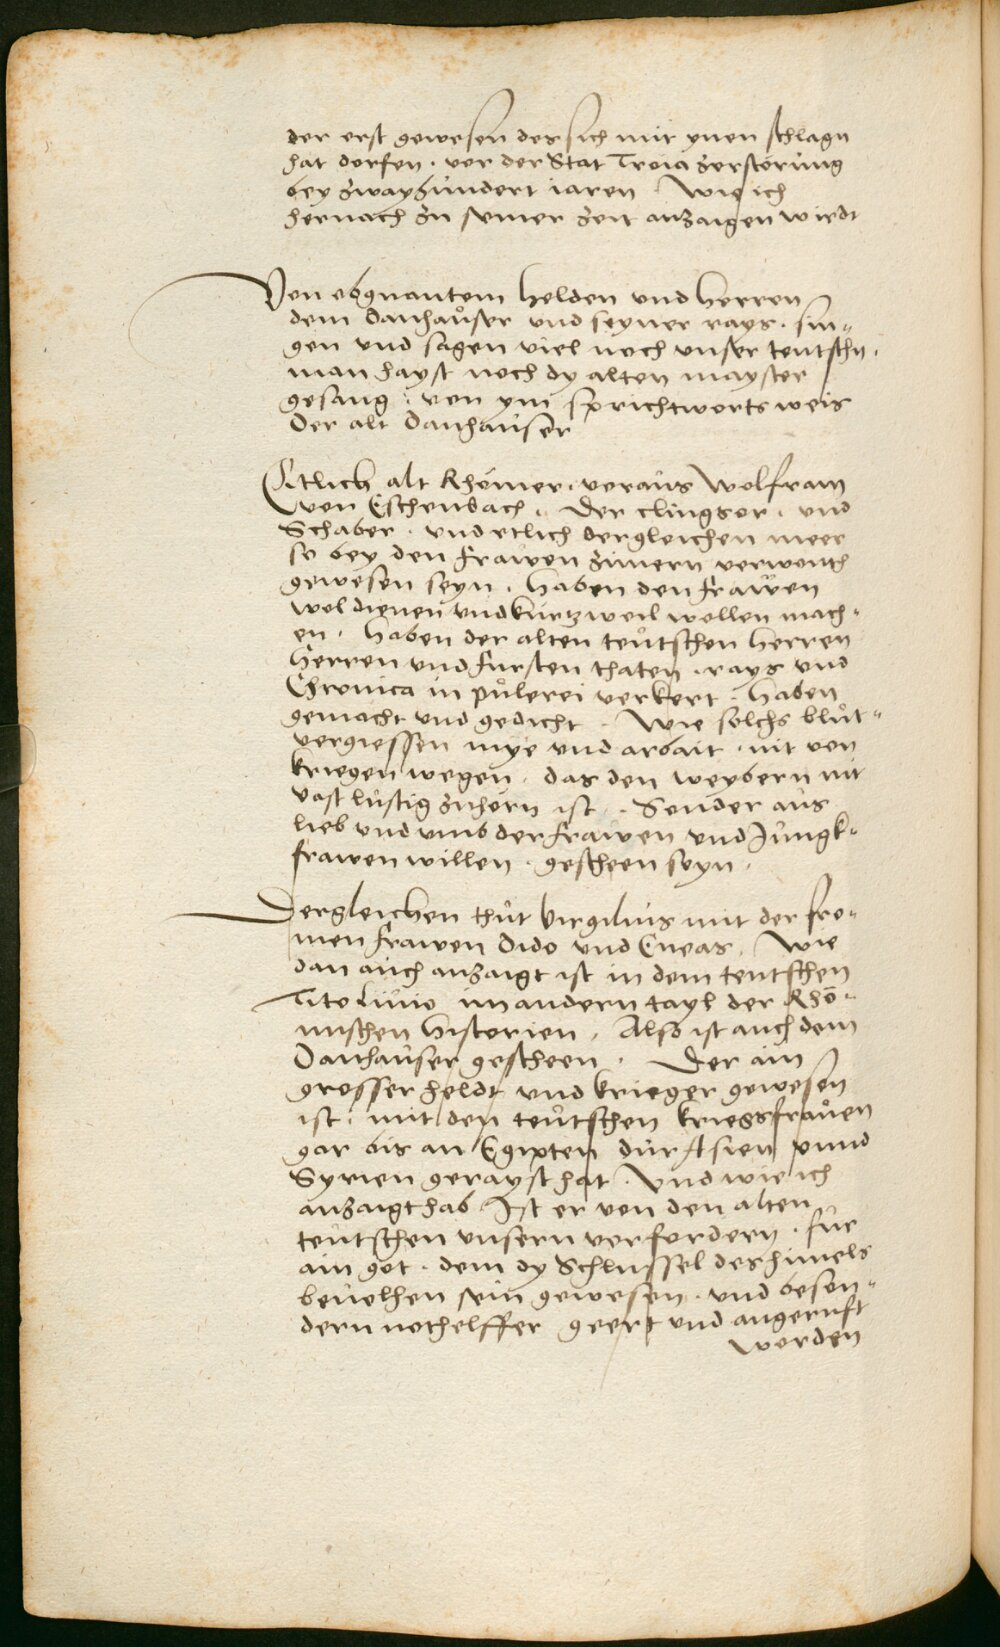 der erst gewesen der sich mit ynen schlagn
hat dorfen . vor der Stat Troia zerstörung
bey zwayhundert iaren . Wie ich
hernach zu seiner zeit anzaigen wirdt
Von obgnantem helden und herren
dem Danhaůser und seyner rays . sin=
gen und sagen viel noch unser teutschn .
man hayst noch dy alten mayster
gesang : von ym sprichtworts weis
Der alt Danhauser
Etlich alt Rhömer . voraus Wolfram
von Eschenbach . Der clingsor . und
Schaber . und etlich dergleichen meer
so bey den frawen zimern verwenth
gewesen seyn . haben den frawen
wol dienen und kurtzweil wollen mach=
en . haben der alten teůtschen herren
herren und fursten thaten . rays und
Chronica in půlerei verkert . haben
gemacht und gedicht . Wie solchs blůt=
vergiessen mye und arbait . nit von
kriegen wegen . das den weybern nit
vast lustig zuhörn ist . Sonder aus
lieb und umb der frawen und Jungk=
frawen willen . gescheen seyn .
Dergleichen thůt Virgilius mit der fro=
men frawen Dido und Eneas . Wie
dan auch anzaigt ist in dem teutschen
Tito Liuio im andern tayl der Rhö=
mischen historien . Also ist auch dem
Danhauser gescheen . Der ain
grosser heldt und krieger gewesen
ist . mit den teůtschen kriegsfraůen
gar bis an Egipten dur Asien unnd
Syrien gerayst hat . Und wie ich
anzaigt hab Ist er von den alten
teutschen unsern vorfordern . fur
ain got . dem dy Schlussel des himels
beuolhen sein gewesen . und beson=
dern nothelffer geert und angeruft
worden